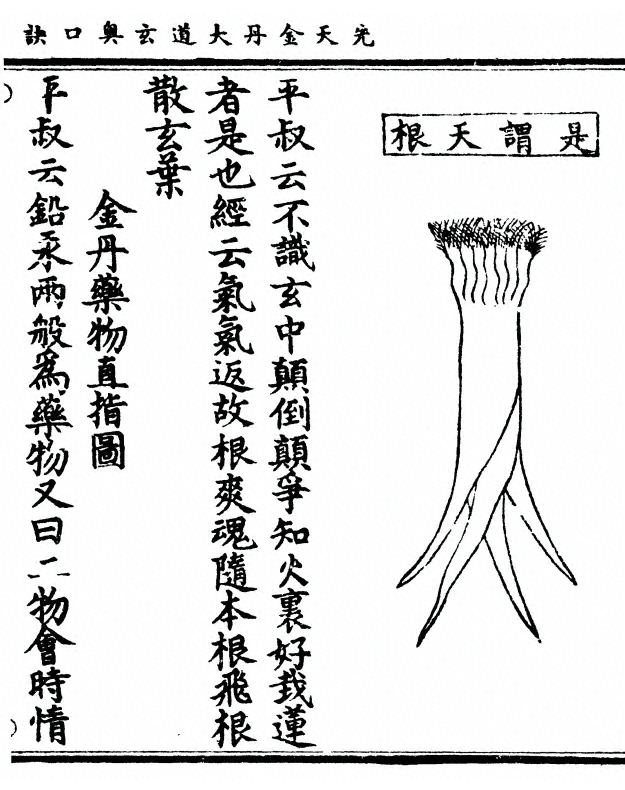 先天金丹大道玄奧口訣
是謂天根
平叔云不識玄中顛倒顛爭知火裏好栽蓮
者是也經云氣氣返故根爽魂隨本根飛根
散玄葉
金丹藥物直指圖
平叔云鉛汞兩般爲藥物又曰二物會時情